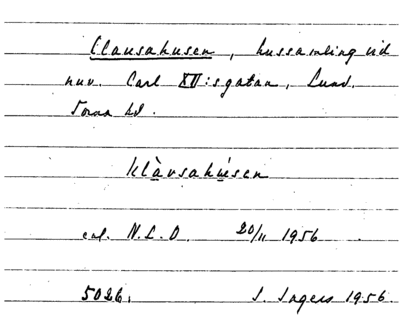 Clausahusen, hussamling vid
nuv. Carl XII:sgatan, Lund.
Torna hd.
klàvsahúsen
enl. N.L.O. 20/11 1956
5026. I. Ingers 1956.